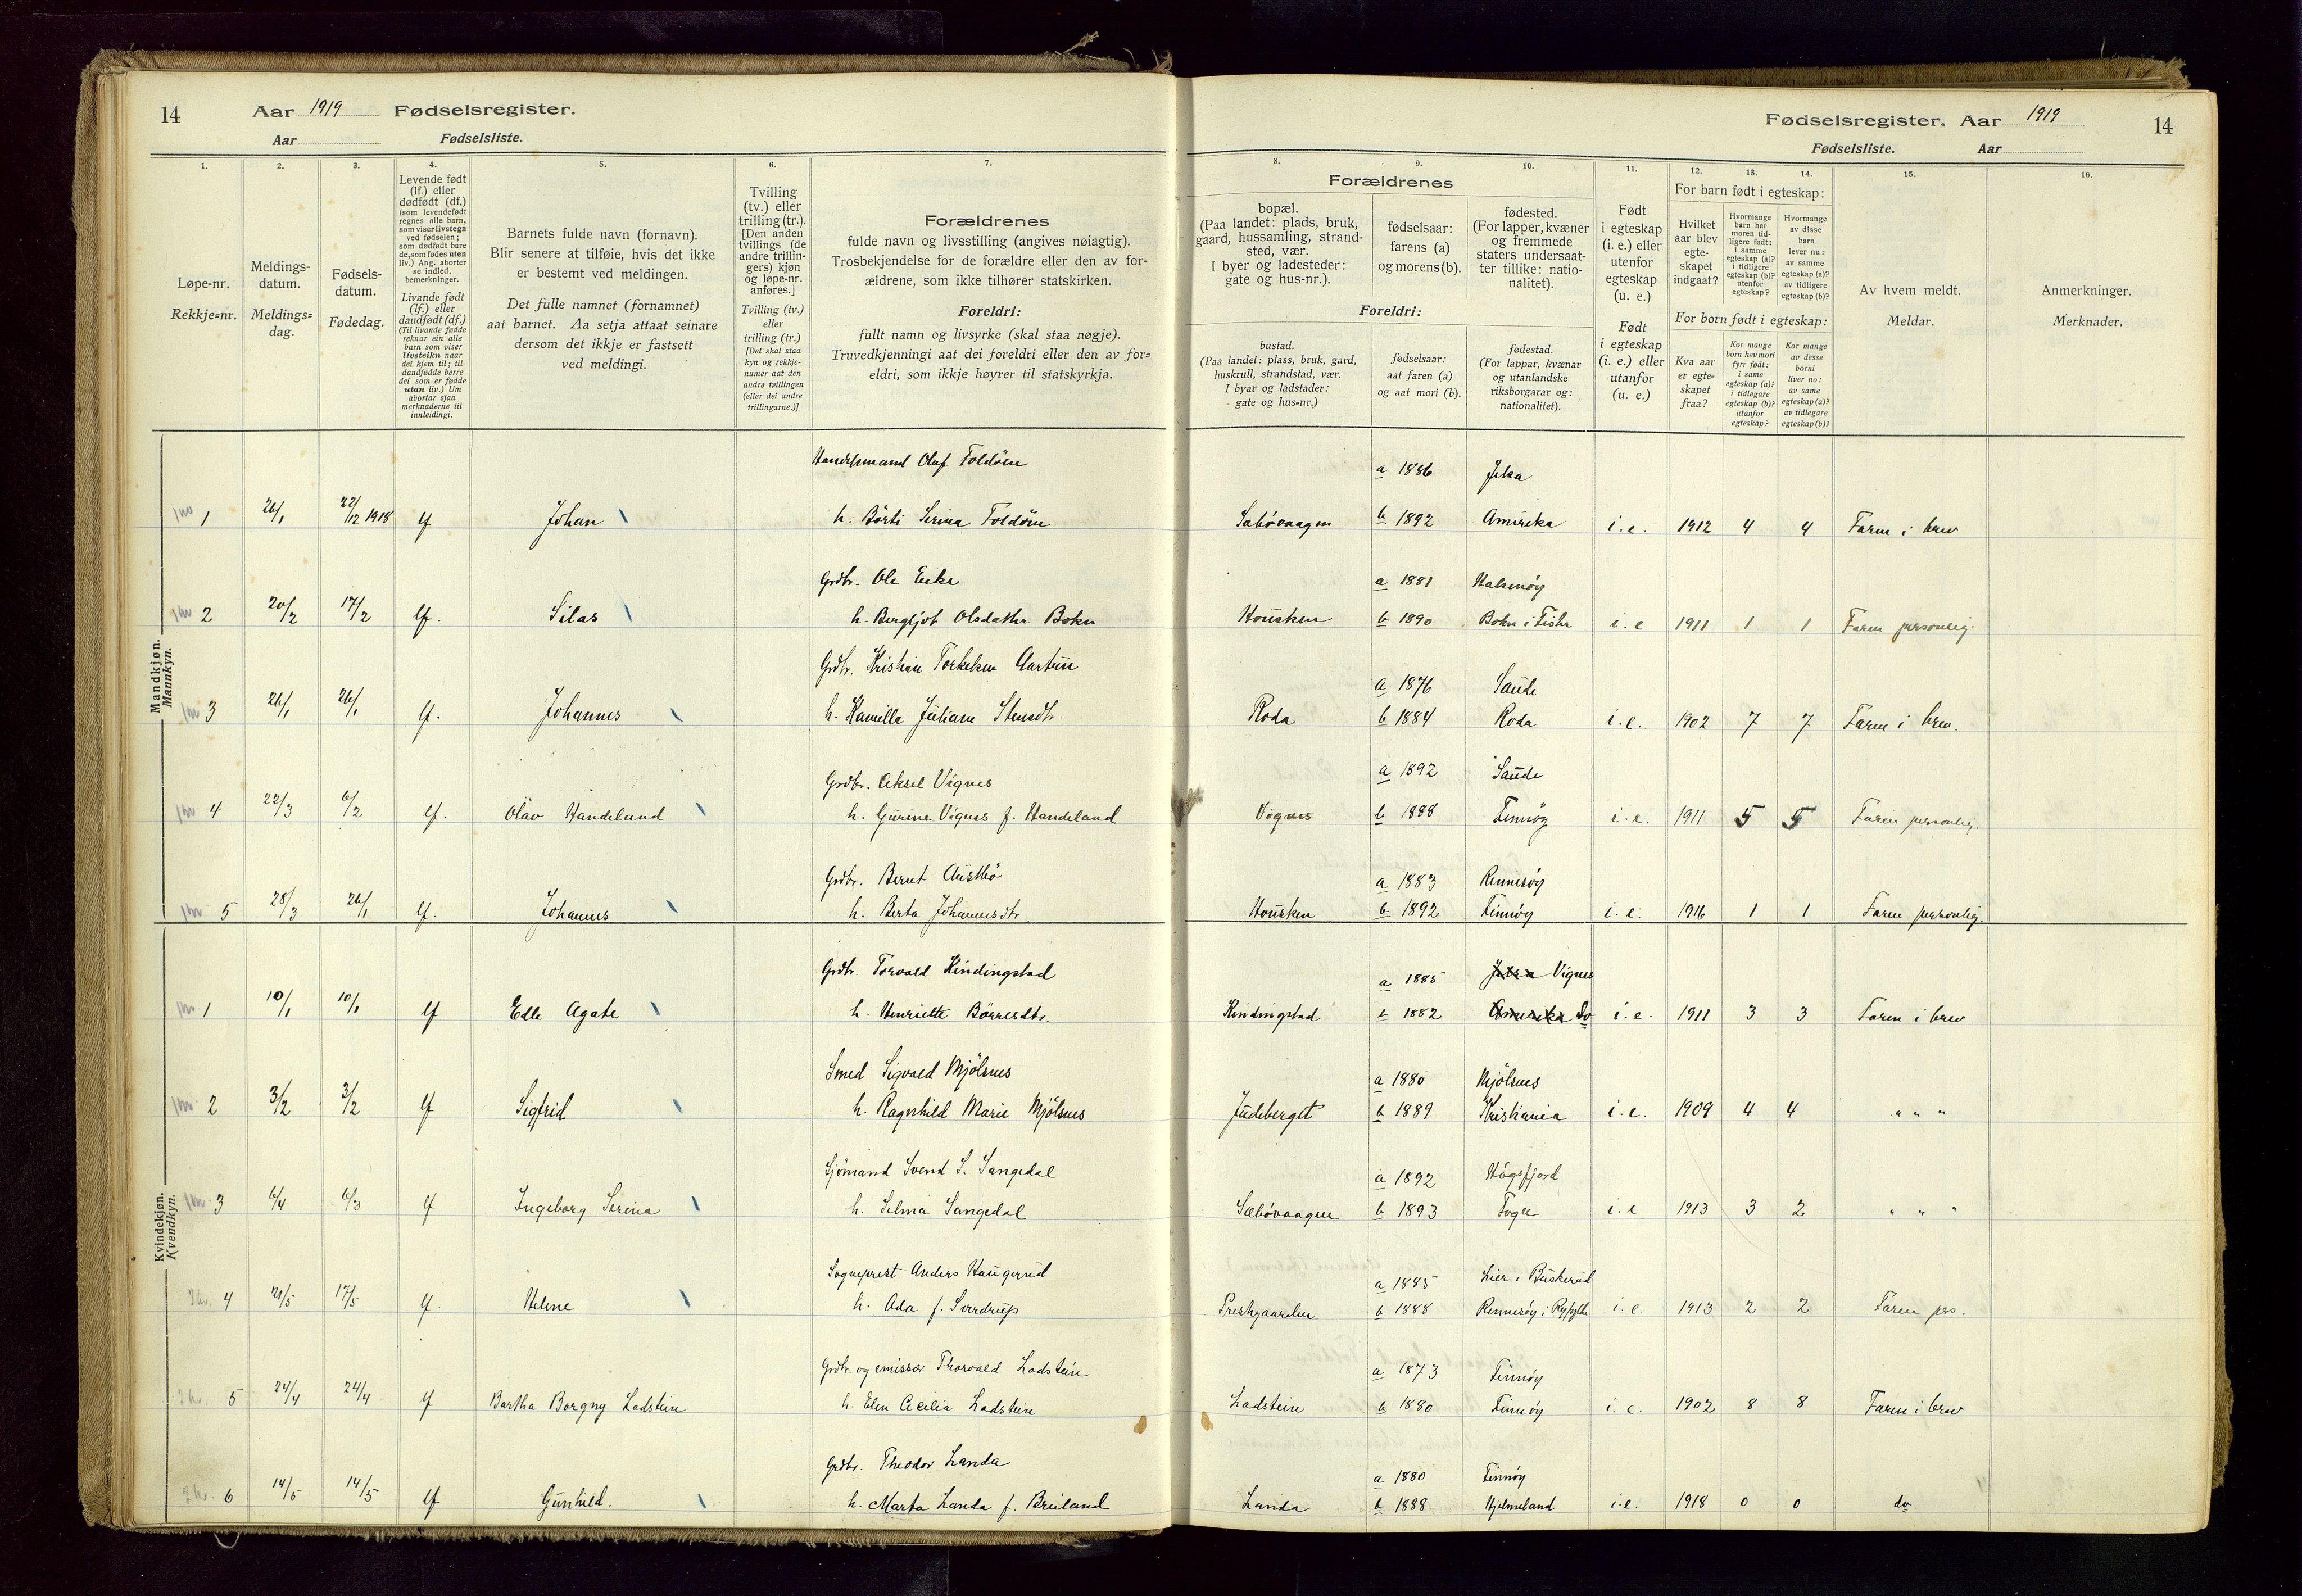 14 Aar 1919 Fødselsregister.
Aar Fødselsliste.
Fødselsregister. Aar 1919 14
Fødselsliste. Aar
1. 2. 3. 4. 5. 6. 7.
Løpe-nr.
Rekkje=nr.
Meldings-
datum.
Meldings=
dag.
Fødsels-
datum.
Fødedag.
Levende født
(lf.) eller
dødfødt (df.)
(som levendefødt
regnes alle barn,
som viser livstegn
ved fødselen;
som dødfødt bare
de, som fødes uten
liv.) Ang. aborter
se indled.
bemerkninger.
Livande født
(lf.) eller
daudfødt (df.)
(Til livande fødde
reknar ein alle
barn som viser
livsteikn naar
dei kjem til; til
daudfødde berre
dei som er fødde
utan liv.) Um
abortar sjaa
merknaderne til
innleidingi.
Barnets fulde navn (fornavn).
Blir senere at tilføie, hvis det ikke
er bestemt ved meldingen.
Det fulle namnet (fornamnet)
aat barnet. Aa setja attaat seinare
dersom det ikkje er fastsett
ved meldingi.
Tvilling
(tv.) eller
trilling (tr.).
[Den anden
tvillings (de
andre trillin-
gers) kjøn
og løpe-nr.
anføres.]
Tvilling (tv.)
eller
trilling (tr.)
[Det skal staa
kyn og rekkje-
numer aat den
andre tvillingen
(eller dei andre
trillingarne.)]
Forældrenes
fulde navn og livsstilling (angives nøiagtig).
Trosbekjendelse for de forældre eller den av for-
ældrene, som ikke tilhører statskirken.
Foreldri:
fullt namn og livsyrke (skal staa nøgje).
Truvedkjenningi aat dei foreldri eller den av for=
eldri, som ikkje høyrer til statskyrkja.
8. 9. 10. 11. 12. 13. 14. 15. 16.
Forældrenes
bopæl.
(Paa landet: plads, bruk,
gaard, hussamling, strand-
sted, vær.
I byer og ladesteder:
gate og hus-nr.).
fødselsaar:
farens (a)
og morens (b).
fødested.
(For lapper, kvæner
og fremmede
staters undersaat-
ter tillike: natio-
nalitet).
Foreldri:
bustad.
(Paa landet: plass, bruk, gard,
huskrull, strandstad, vær.
I byar og ladstader:
gate og hus=nr.)
fødselsaar:
aat faren (a)
og aat mori (b).
fødestad.
(For lappar, kvænar
og utanlandske
riksborgarar og:
nationalitet).
Født
i egteskap
(i. e.) eller
utenfor
egteskap
(u. e.)
Født
i egteskap
(i. e.) eller
utanfor
(u. e.)
For barn født i egteskap:
Hvilket
aar blev
egte-
skapet
indgaat?
Hvormange
barn har
moren tid-
ligere født:
i samme
egteskap (a)?
i tidligere
egteskap (b)?
utenfor
egteskap?
Hvormange
av disse
barn
lever nu:
av samme
egteskap (a)?
av tidligere
egteskap (b)?
For born født i egteskap:
Kva aar
er egte=
skapet
fraa?
Kor mange
born hev mori
fyrr født:
i same
egteskap (a)?
i tidlegare
egteskap (b)?
utanfor
egteskap?
Kor mange
av desse
borni
liver no:
av same
egteskap (a)?
av tidlegare
egteskap (b)?
Av hvem meldt.
Meldar.
Anmerkninger.
Merknader.
Mandkjøn.
Mannkyn.
Handelsmand Olaf Foldöen a 1886 Jelsa
1 26/1 22/12 1918 lf Johan h. Börti Serina Foldöen Sæbövaagen b 1892 Amerika i. e. 1912 4 4 Faren i brev
Grdbr. Ole Eike a 1881 Halsnöy
2 20/2 17/2 lf. Silas h. Bergljot Olsdatter Bokn Housken b 1890 Bokn i Fister i. e 1911 1 1 Faren personlig.
Grdbr. Kristian Torkelsen Aartun a 1876 Saude
3 26/1 26/1 lf. Johannes h. Kamilla Juliane Stensdtr. Roda b 1884 Roda i. e. 1902 7 7 Faren i brev.
Grdbr. Aksel Vignes a 1892 Saude
4 22/3 6/2 lf. Olav Handeland h. Gurine Vignes f. Handeland Vignes b 1888 Finnöy i. e. 1911 5 5 Faren personlig.
Grdbr. Bernt Austbö a 1883 Rennesöy
5 28/3 26/1 lf. Johannes h. Berta Johannesdtr. Housken b 1892 Finnöy i. e. 1916 1 1 Faren personlig.
Kvindekjøn.
Kvendkyn.
Grdbr. Torvald Kindingstad a 1885 Jelsa Vignes
1 10/1 10/1 lf Edle Agate h. Henriette Börresdtr. Kindingstad b 1882 Amerika do i. e. 1911 3 3 Faren i brev
Smed Sigvald Mjölsnes a 1880 Mjölsnes
2 3/2 3/2 lf Sigfrid h. Ragnhild Marie Mjölsnes Judeberget b 1889 Kristiania i. e. 1909 4 4 " " "
Sjömand Svend S. Sangedal a 1892 Högsfjord
3 6/4 6/3 lf Ingeborg Serina h. Selma Sangedal Sæbövaagen b 1893 Fogn i. e 1913 3 2 " " "
Sogneprest Anders Haugerud a 1885 Lier i Buskerud
4 21/5 17/5 lf. Helene h. Ada f. Sverdrup Prestgaarden b 1888 Rennesöy i Ryfylke i. e. 1913 2 2 Faren prs.
Grdbr. og emissær Thorvald Ladstein a 1873 Finnöy
5 24/4 24/4 lf Bertha Borgny Ladstein h. Elen Cecilia Ladstein Ladstein b 1880 Finnöy i. e. 1902 8 8 Faren i brev
Grdbr. Theodor Landa a 1880 Finnöy
6 14/5 14/5 lf Gunhild. h. Marta Landa f. Breiland Landa b 1888 Hjelmeland i. e. 1918 0 0 do